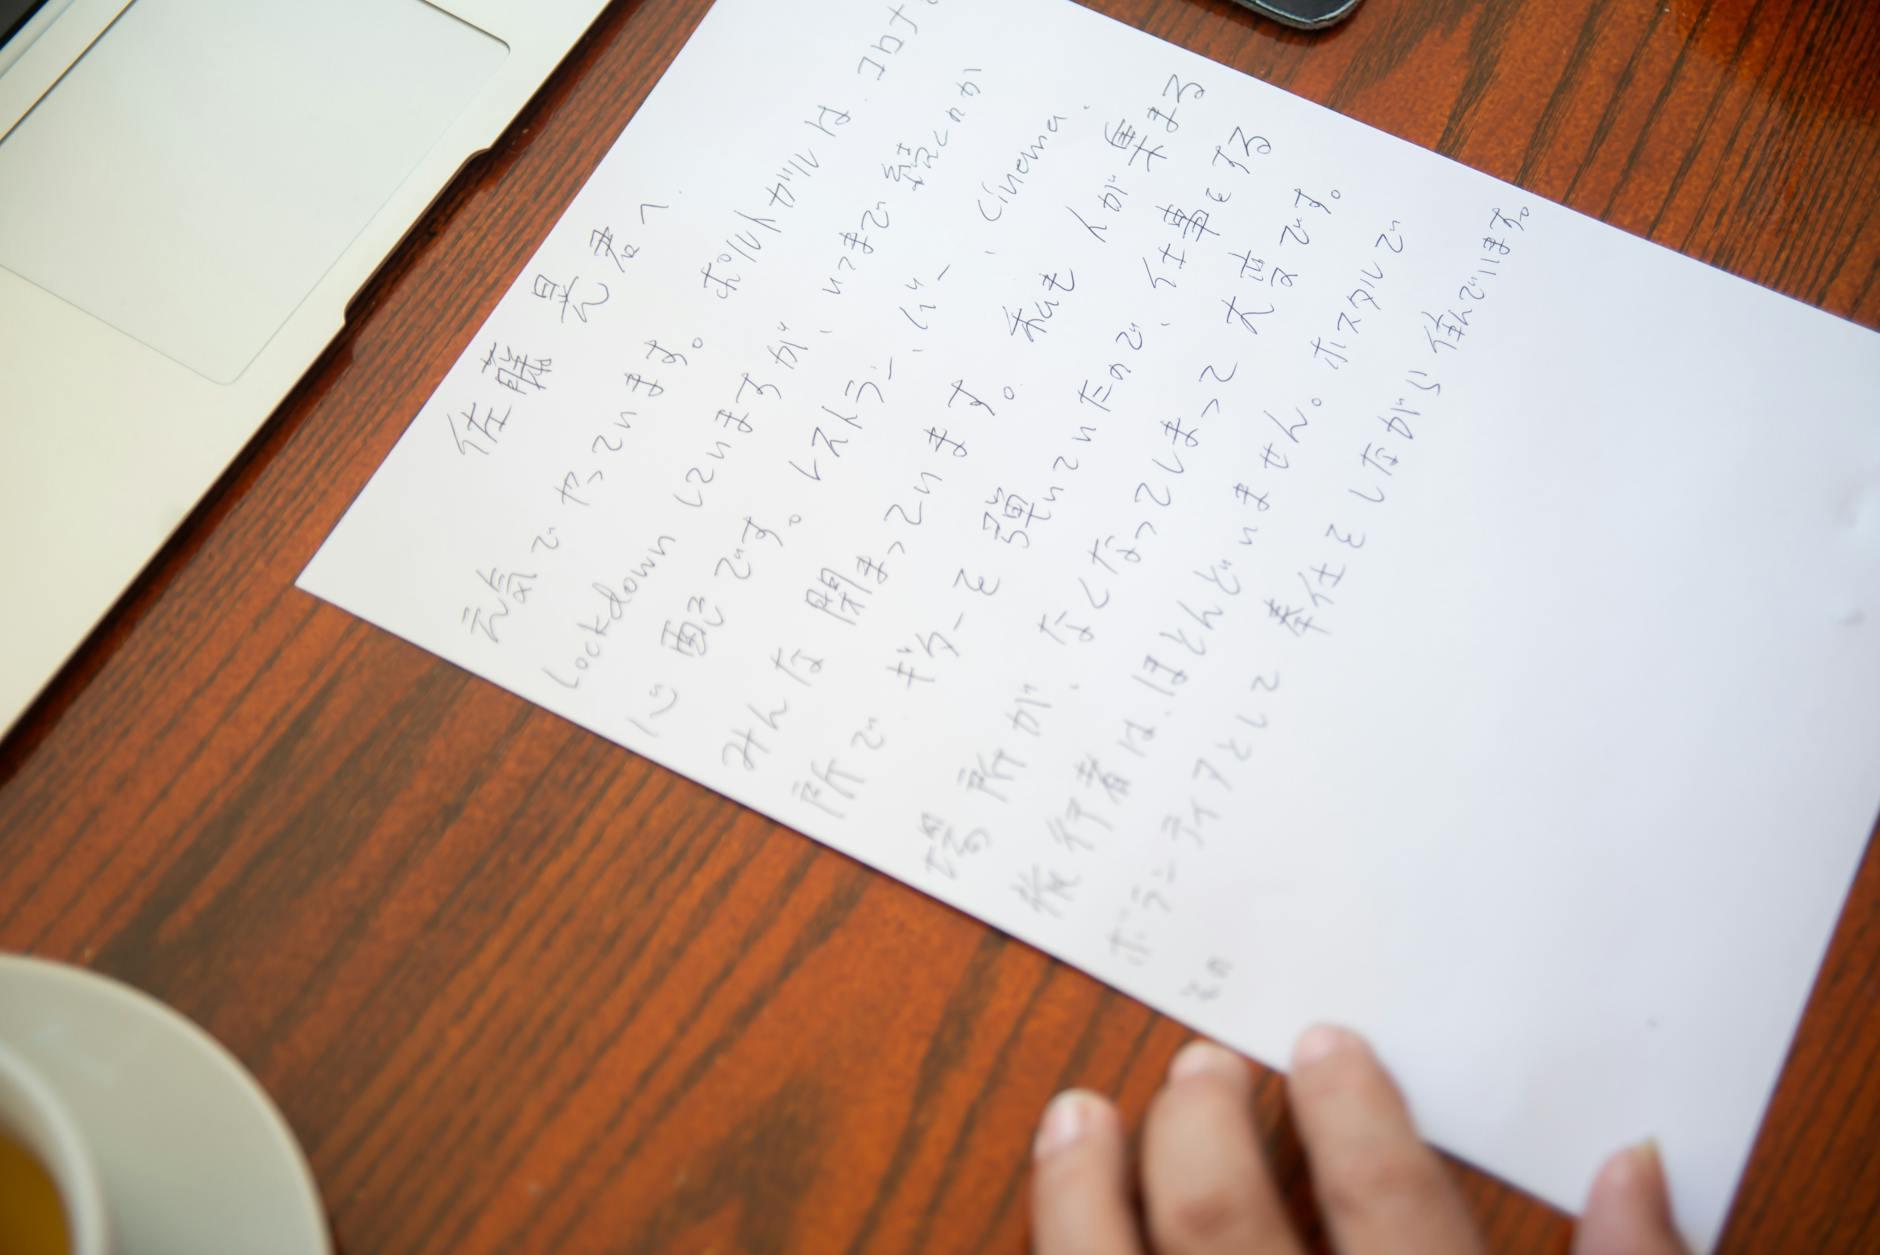 佐藤 晃君へ
元気でやっています。ポルトガルは、コロナで
Lockdownしていますが、いつまで続くのか
心配です。レストラン、バー、Cinema、
みんな閉まっています。私も人が集まる
所でギターを弾いていたので、仕事をする
場所が、なくなってしまって大変です。
旅行者は、ほとんどいません。ホステルで
ボランティアとして奉仕をしながら住んでいます。
その